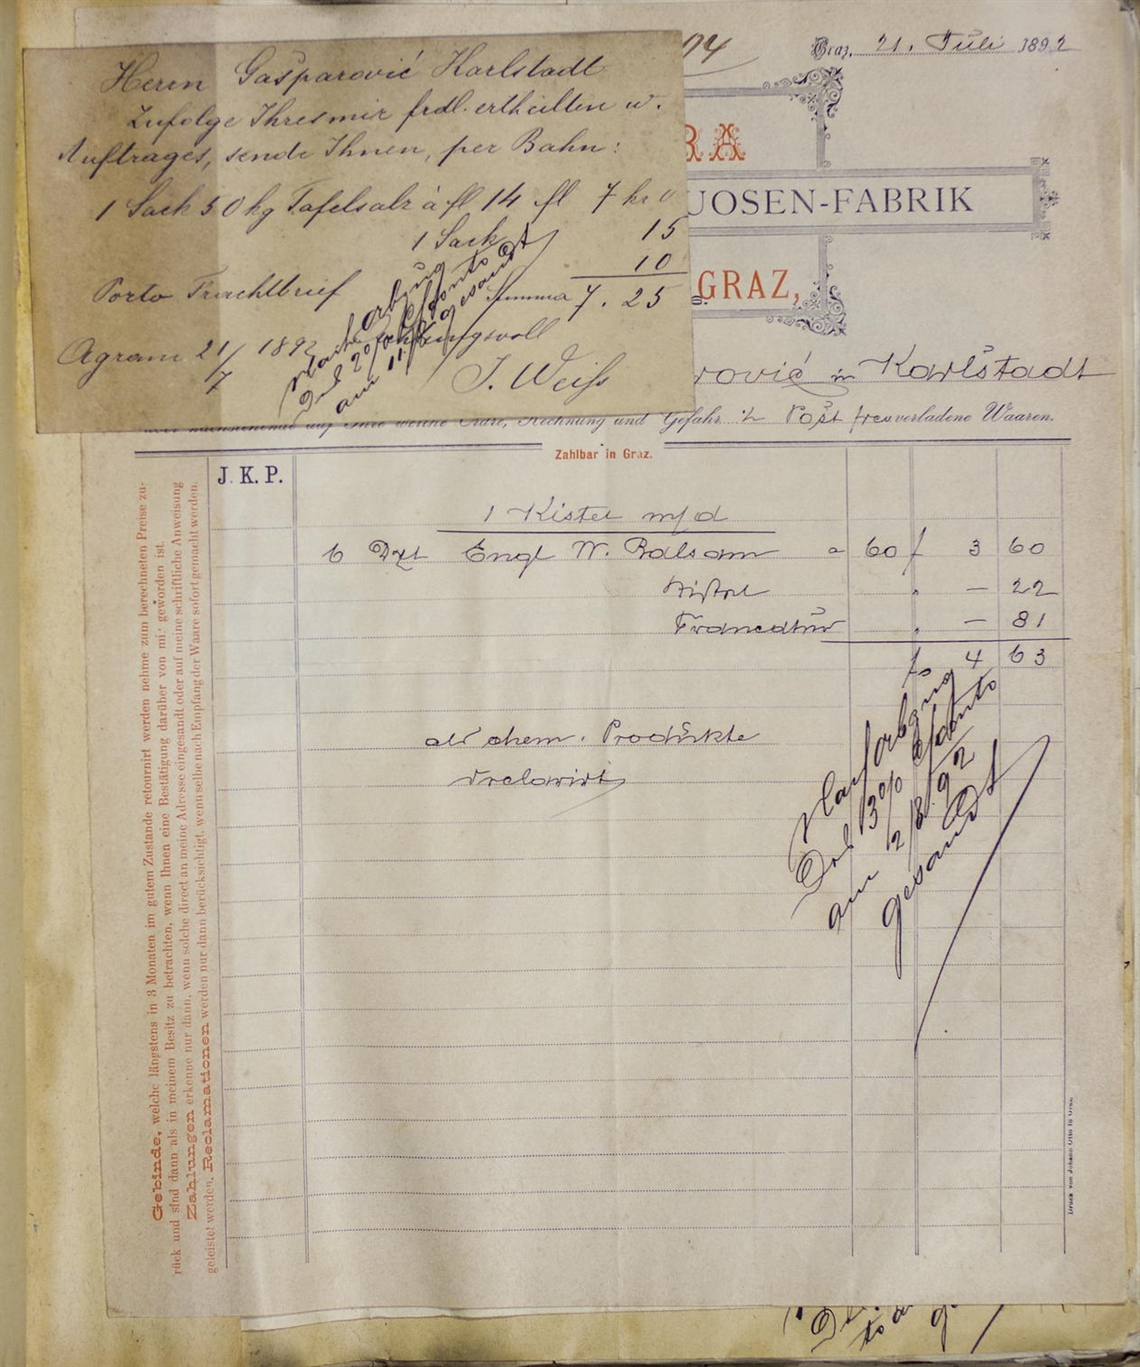 Herrn Gašparović Karlstadt
Zufolge Ihres mir frdl. ertheilten w.
Auftrages, sende Ihnen, per Bahn:
1 Sack 50 kg Tafelsalz à fl 14 fl 7 kr 0
1 Sack 15
Porto Frachtbrief 10
Summa 7. 25
Agram 21/7 1892
J. Weiß
Graz, 21. Juli 1892
RA
UOSEN-FABRIK
GRAZ,
rović in Karlstadt
auf Ihre werthe Ordre, Rechnung und Gefahr Post verladene Waaren.
Zahlbar in Graz.
J. K. P.
1 Kistel m/d
6 Dzt Engl W. Balsam a 60 f 3 60
Kistel " — 22
Francatur " — 81
fs 4 63
als chem. Produkte
declarirt
Nach Abzug
3% Sconto
am 2/8. 92
gesandt
Gebinde, welche längstens in 3 Monaten im gutem Zustande retournirt werden nehme zum berechneten Preise zu-
rück und sind dann als in meinem Besitz zu betrachten, wenn Ihnen eine Bestätigung darüber von mir geworden ist.
Zahlungen erkenne nur dann, wenn solche direct an meine Adresse eingesandt oder auf meine schriftliche Anweisung
geleistet werden. Reclamationen werden nur dann berücksichtigt, wenn selbe nach Empfang der Waare sofort gemacht werden.
Druck von Johann Otto in Graz.